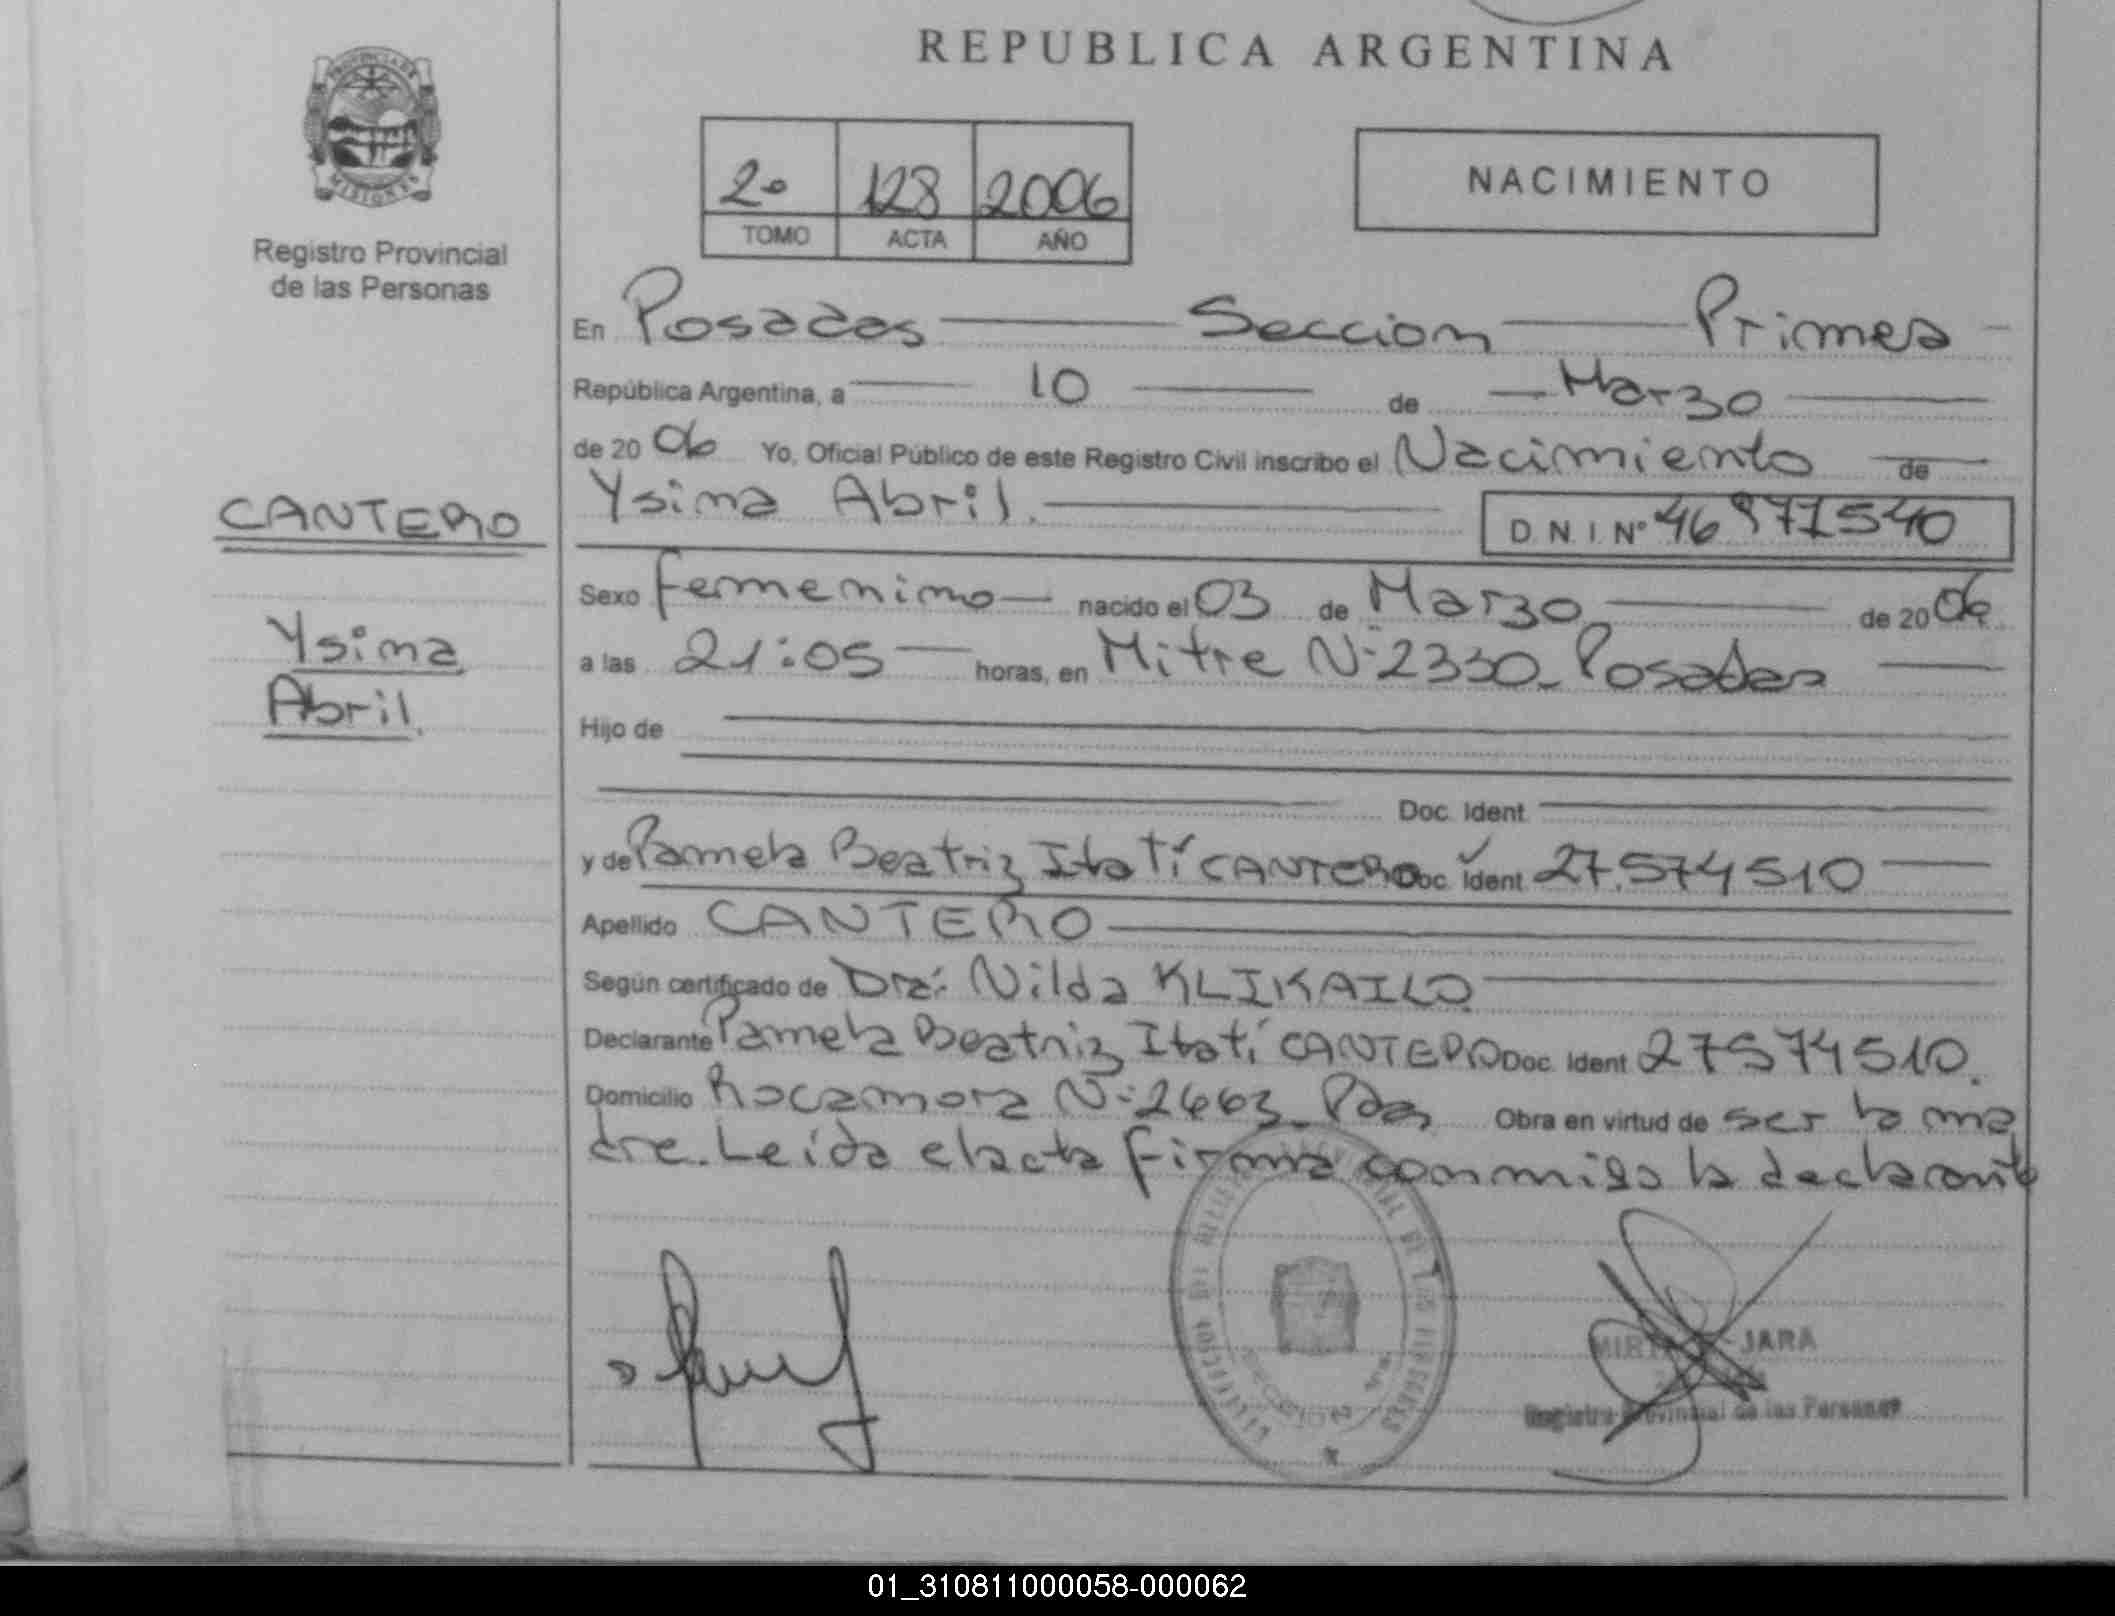 REPUBLICA ARGENTINA
PROVINCIA DE
MISIONES
Registro Provincial
de las Personas
2º 128 2006
TOMO ACTA AÑO
NACIMIENTO
En Posadas Seccion Primera
República Argentina, a 10 de Marzo
de 2006 Yo, Oficial Público de este Registro Civil inscribo el Nacimiento de
Ysina Abril. D.N.I. Nº 46977540
CANTERO
Ysina
Abril.
Sexo femenino nacido el 03 de Marzo de 2006
a las 21:05 horas, en Mitre Nº 2330_ Posadas
Hijo de
Doc. Ident.
y de Pamela Beatriz Itatí CANTERO Doc. Ident. 27.574510
Apellido CANTERO
Según certificado de Dra: Nilda KLIKAILO
Declarante Pamela Beatriz Itatí CANTERO Doc. Ident 27574510.
Domicilio Rocamora Nº 2663_ Pdas Obra en virtud de ser la ma
dre. Leída el acta firma conmigo la declarante
JARA
Registro Provincial de las Personas
01_310811000058-000062